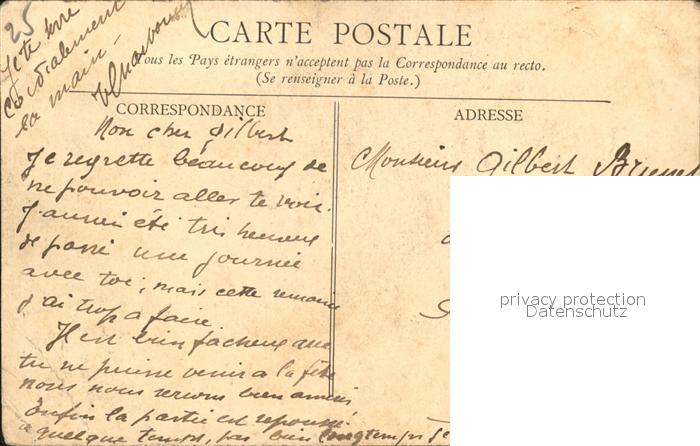 25
Je te serre
cordialement
la main.
CARTE POSTALE
Tous les Pays étrangers n'acceptent pas la Correspondance au recto.
(Se renseigner à la Poste.)
CORRESPONDANCE
ADRESSE
Mon cher Gilbert
Monsieur Gilbert
Je regrette beaucoup de
ne pouvoir aller te voir.
J'aurais été très heureux
de passé une journée
avec toi; mais cette semaine
j'ai trop a faire.
Il est bien facheux que
tu ne puisse venir a la fête
nous nous serions bien amusés
Enfin la partie est repoussé
a quelque temps, pas bien longtemps Je
privacy protection
Datenschutz